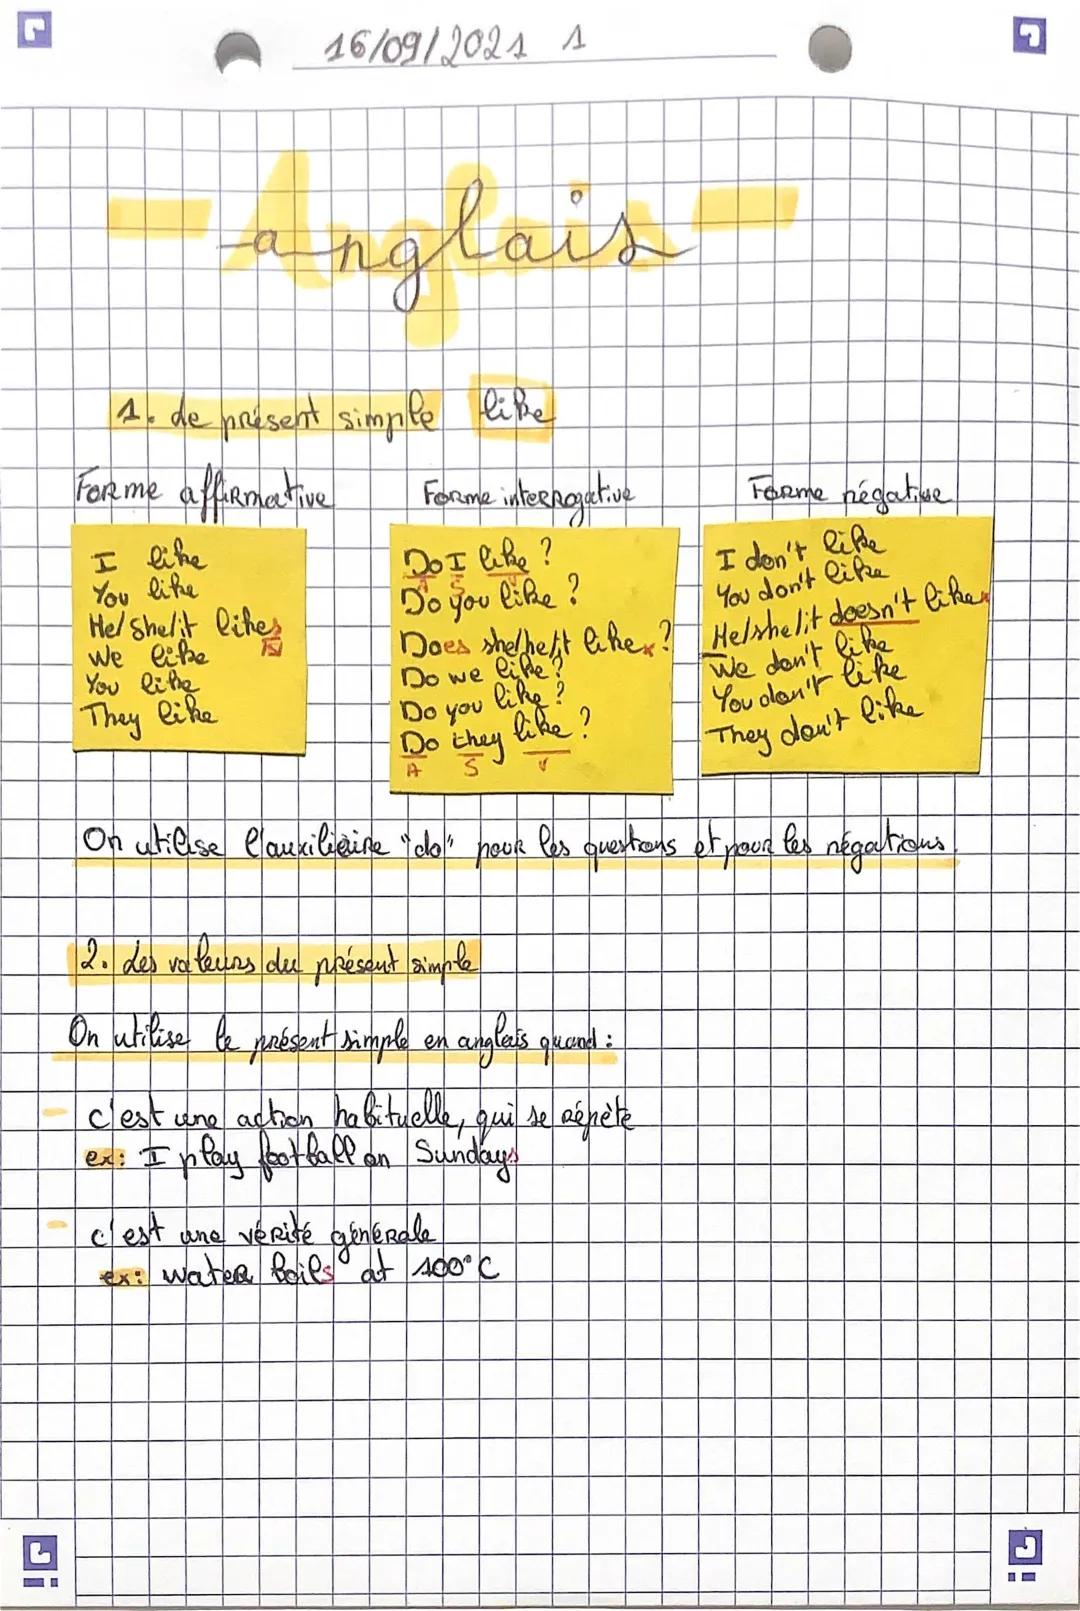 16/09/2021 1
Anglais
anglais
1. Le présent simple like
Forme affirmative
I like
You like
He/She/it likes
We like
You like
They like
Forme interrogative
Do I like ?
A S V
Do you like ?
Does she/he/it likex ?
Do we like ?
Do you like ?
Do they like ?
A S V
Forme négative
I don't like
You don't like
He/she/it doesn't likex
We don't like
You don't like
They don't like
On utilise l'auxilière "do" pour les questions et pour les négations.
2. Les valeurs du présent simple
On utilise le présent simple en anglais quand :
- c'est une action habituelle, qui se répète
ex: I play football on Sundays
- c'est une vérité générale
ex: water boils at 100°C